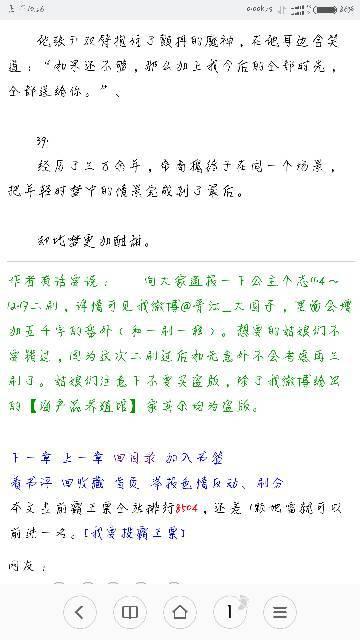 他张开双臂抱住了颤抖的魔神，在他耳边含笑
道：“如果还不够，那么加上我今后的全部时光，
全部送给你。”、
39.
经历了三万余年，帝 终于在同一个场景，
把年轻时梦中的情景完成到了最后。
却比梦更加甜甜。
作者有话要说： 向大家通报一下公主个志11.4～
12.17二刷，详情可见我微博@晋江_大圆子，里面会增
加五千字的番外（和一刷一样）。想要的姑娘们不
要错过，因为这次二刷过后和无意外不会考虑再三
刷了。姑娘们注意下不要买盗版，除了我微博给出
的【海产品养殖馆】家其余均为盗版。
下一章 上一章 回目录 加入书签
看书评 回收藏 首页 举报色情反动、刷分
本文当前霸王票全站排行8504，还差1颗地雷就可以
前进一名。[我要投霸王票]
网友：
1